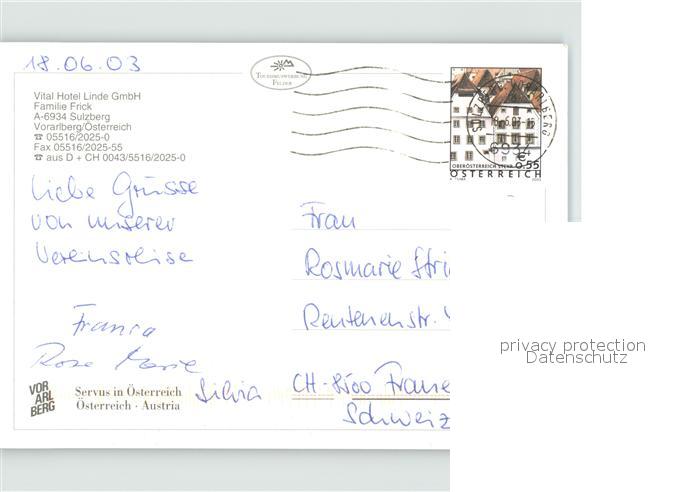 18.06.03
TOURISMUSWERBUNG
FELDER
Vital Hotel Linde GmbH
Familie Frick
A-6934 Sulzberg
Vorarlberg/Österreich
☎ 05516/2025-0
Fax 05516/2025-55
☎ aus D + CH 0043/5516/2025-0
6934
€ 0.55
OBERÖSTERREICH STEYR
ÖSTERREICH
Liebe Grüsse
von unserer
Vereinsreise
Franca
Rose Marie
Silvia
Frau
Rosmarie
Rentenenstr.
CH-8500 Fraue
Schweiz
VOR
ARL
BERG
Servus in Österreich
Österreich · Austria
privacy protection
Datenschutz